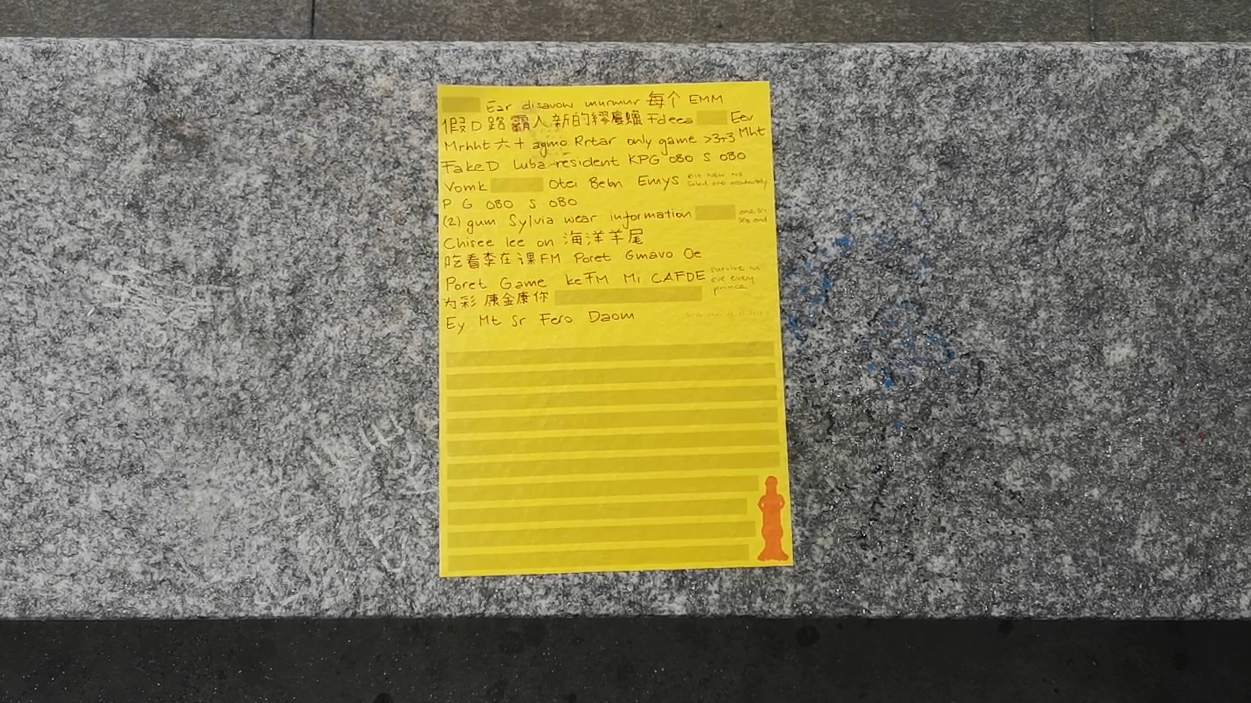 Ear disavow murmur 每个 EMM
假D路霸人新的 Fdeea Eev
Mrhht 六十 agmo Rrtar only game >3+3 Mht
FakeD luba resident KPG 080 S 080
Vomk Otei Bebn Emys
P G 080 S 080
(2) gum Sylvia wear information
Chisee lee on 海洋羊尾
吃看李在课FM Poret Gmavo Oe
Poret Game keFM Mi CAFDE
survive in
eve every
prince
为彩 康金康你
Ey Mt Sr Fero Daom